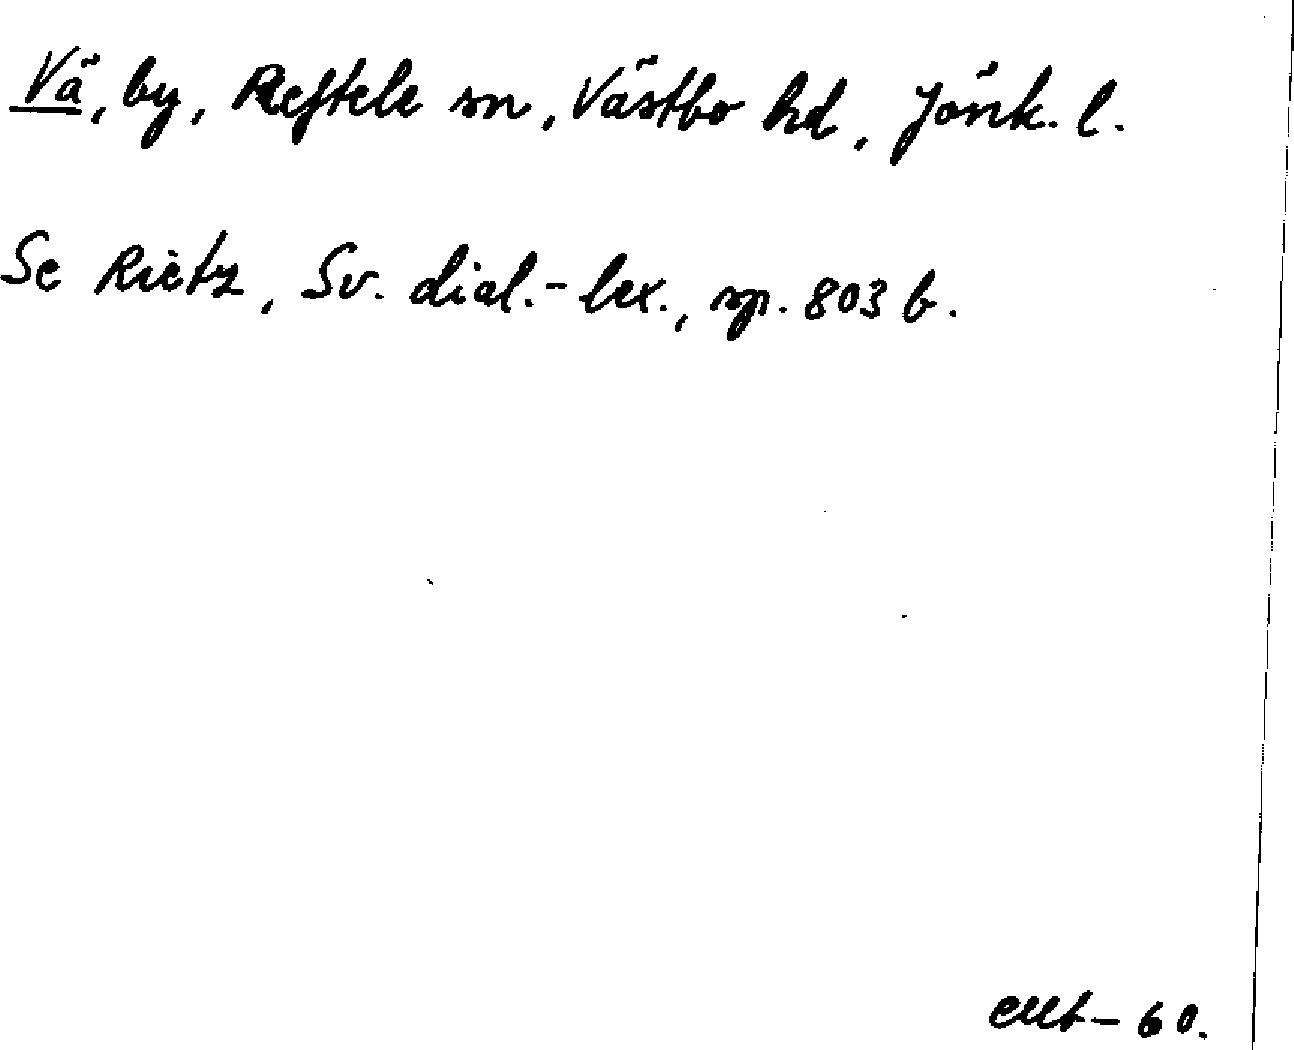 Vä, by, Reftele sn, Västbo hd, Jönk. l.
Se Rietz, Sv. dial.-lex., sp. 803 b.
60.